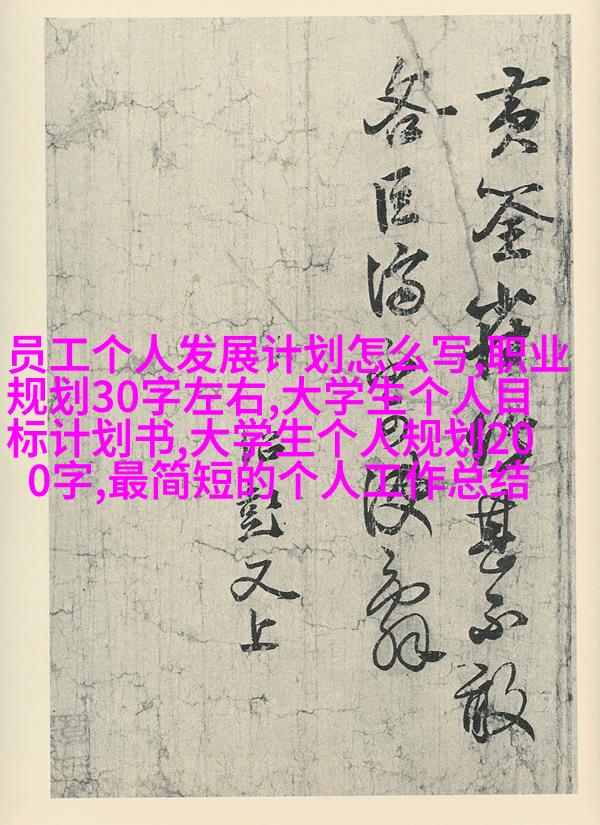 员工个人发展计划怎么写,职业
规划30字左右,大学生个人目
标计划书,大学生个人规划20
0字,最简短的个人工作总结
黄筌雀竹甚不敢
绍彭又上